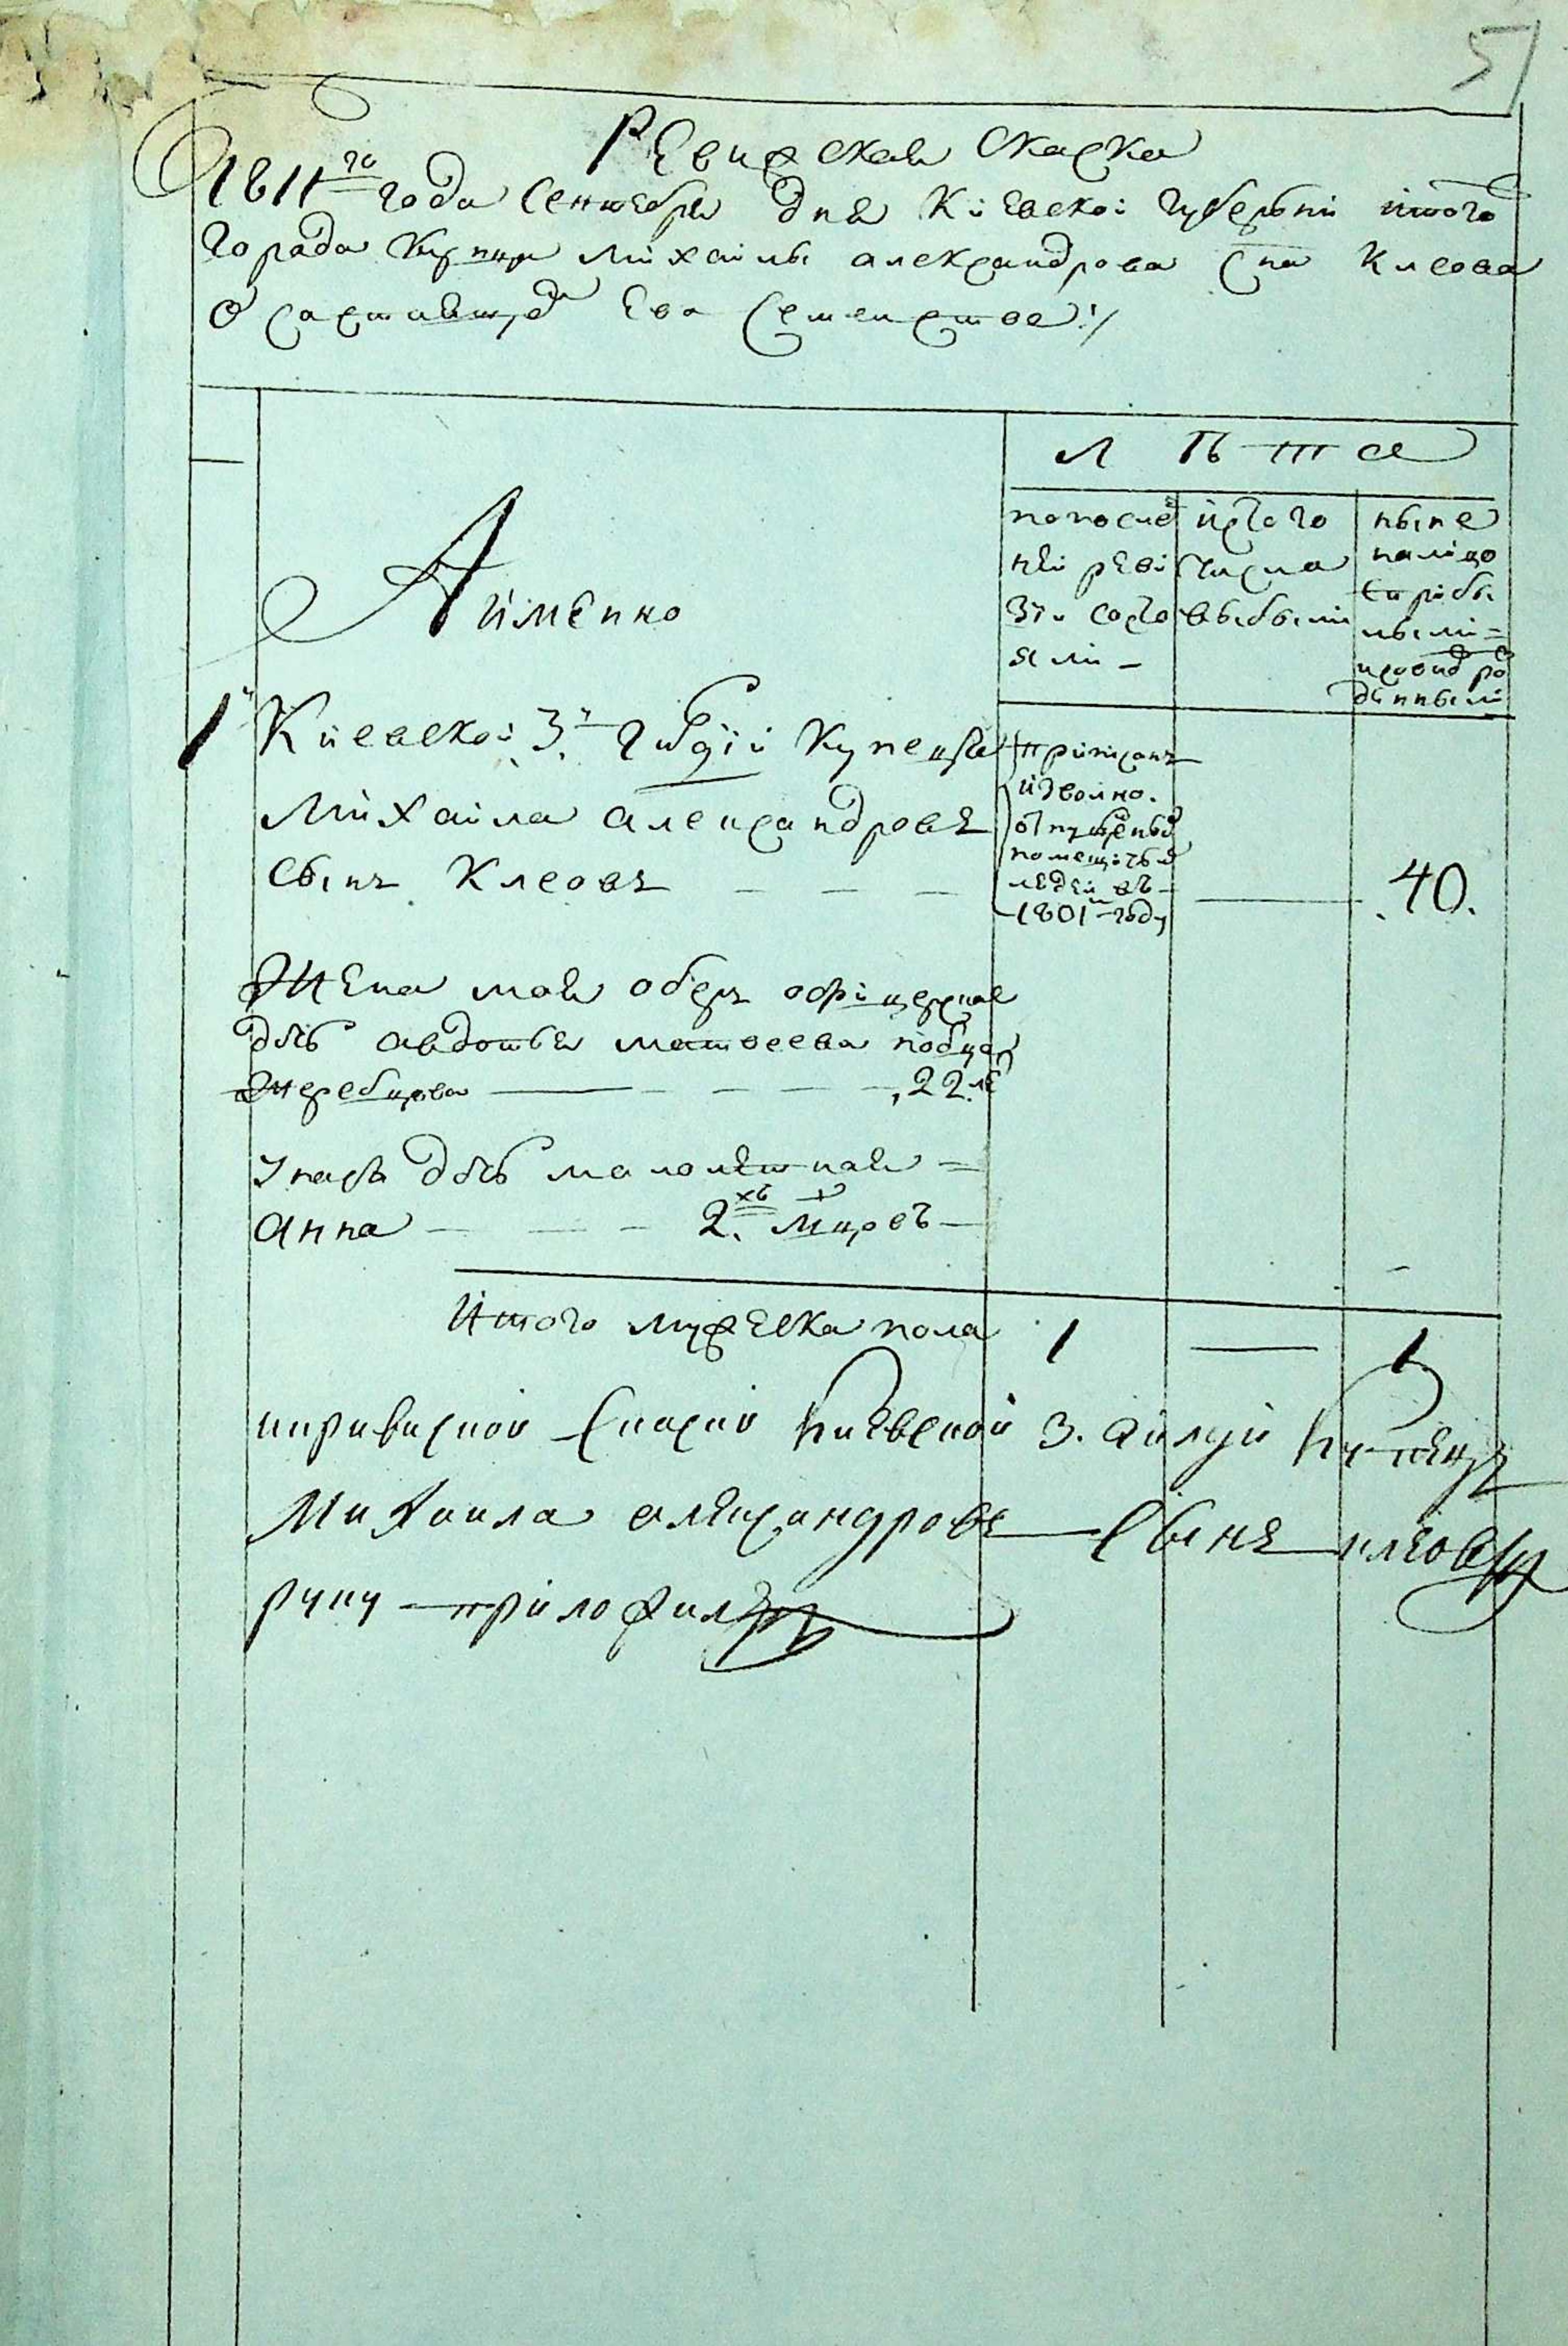 51
Ревижская Скаска
1811го года Сентебря дня Кіевской Губерніи итого
Города Купца Михаилы александрова Сна Клеова
О Састаящем Ево Семействе:/
Лѣта
А именно
попослед
ней реви
зіи состо
яли –
исTого
числа
выбыли
ныне
налицо
с прибы
лыми =
и вновь ро
денными
1й Кіевской 3й Гилдіи Купецъ
Михаила александровъ
сынъ Клеовъ — — —
приписанъ
из волно.
отпущеных
помещичьих
людей въ
1801м году
— 40.
Жена моя оберъ офицерская
дчь авдотья матвеева
Жеребцова — — — 22.ле
У насъ дчь малолетная =
анна — — — 2.хъ Мцовъ —
Итого Мужеска пола 1 — 1
киривиской Скаски киевской 3. гилдии купецъ
Михаила александровъ Сынъ клеовъ
руку приложилъ